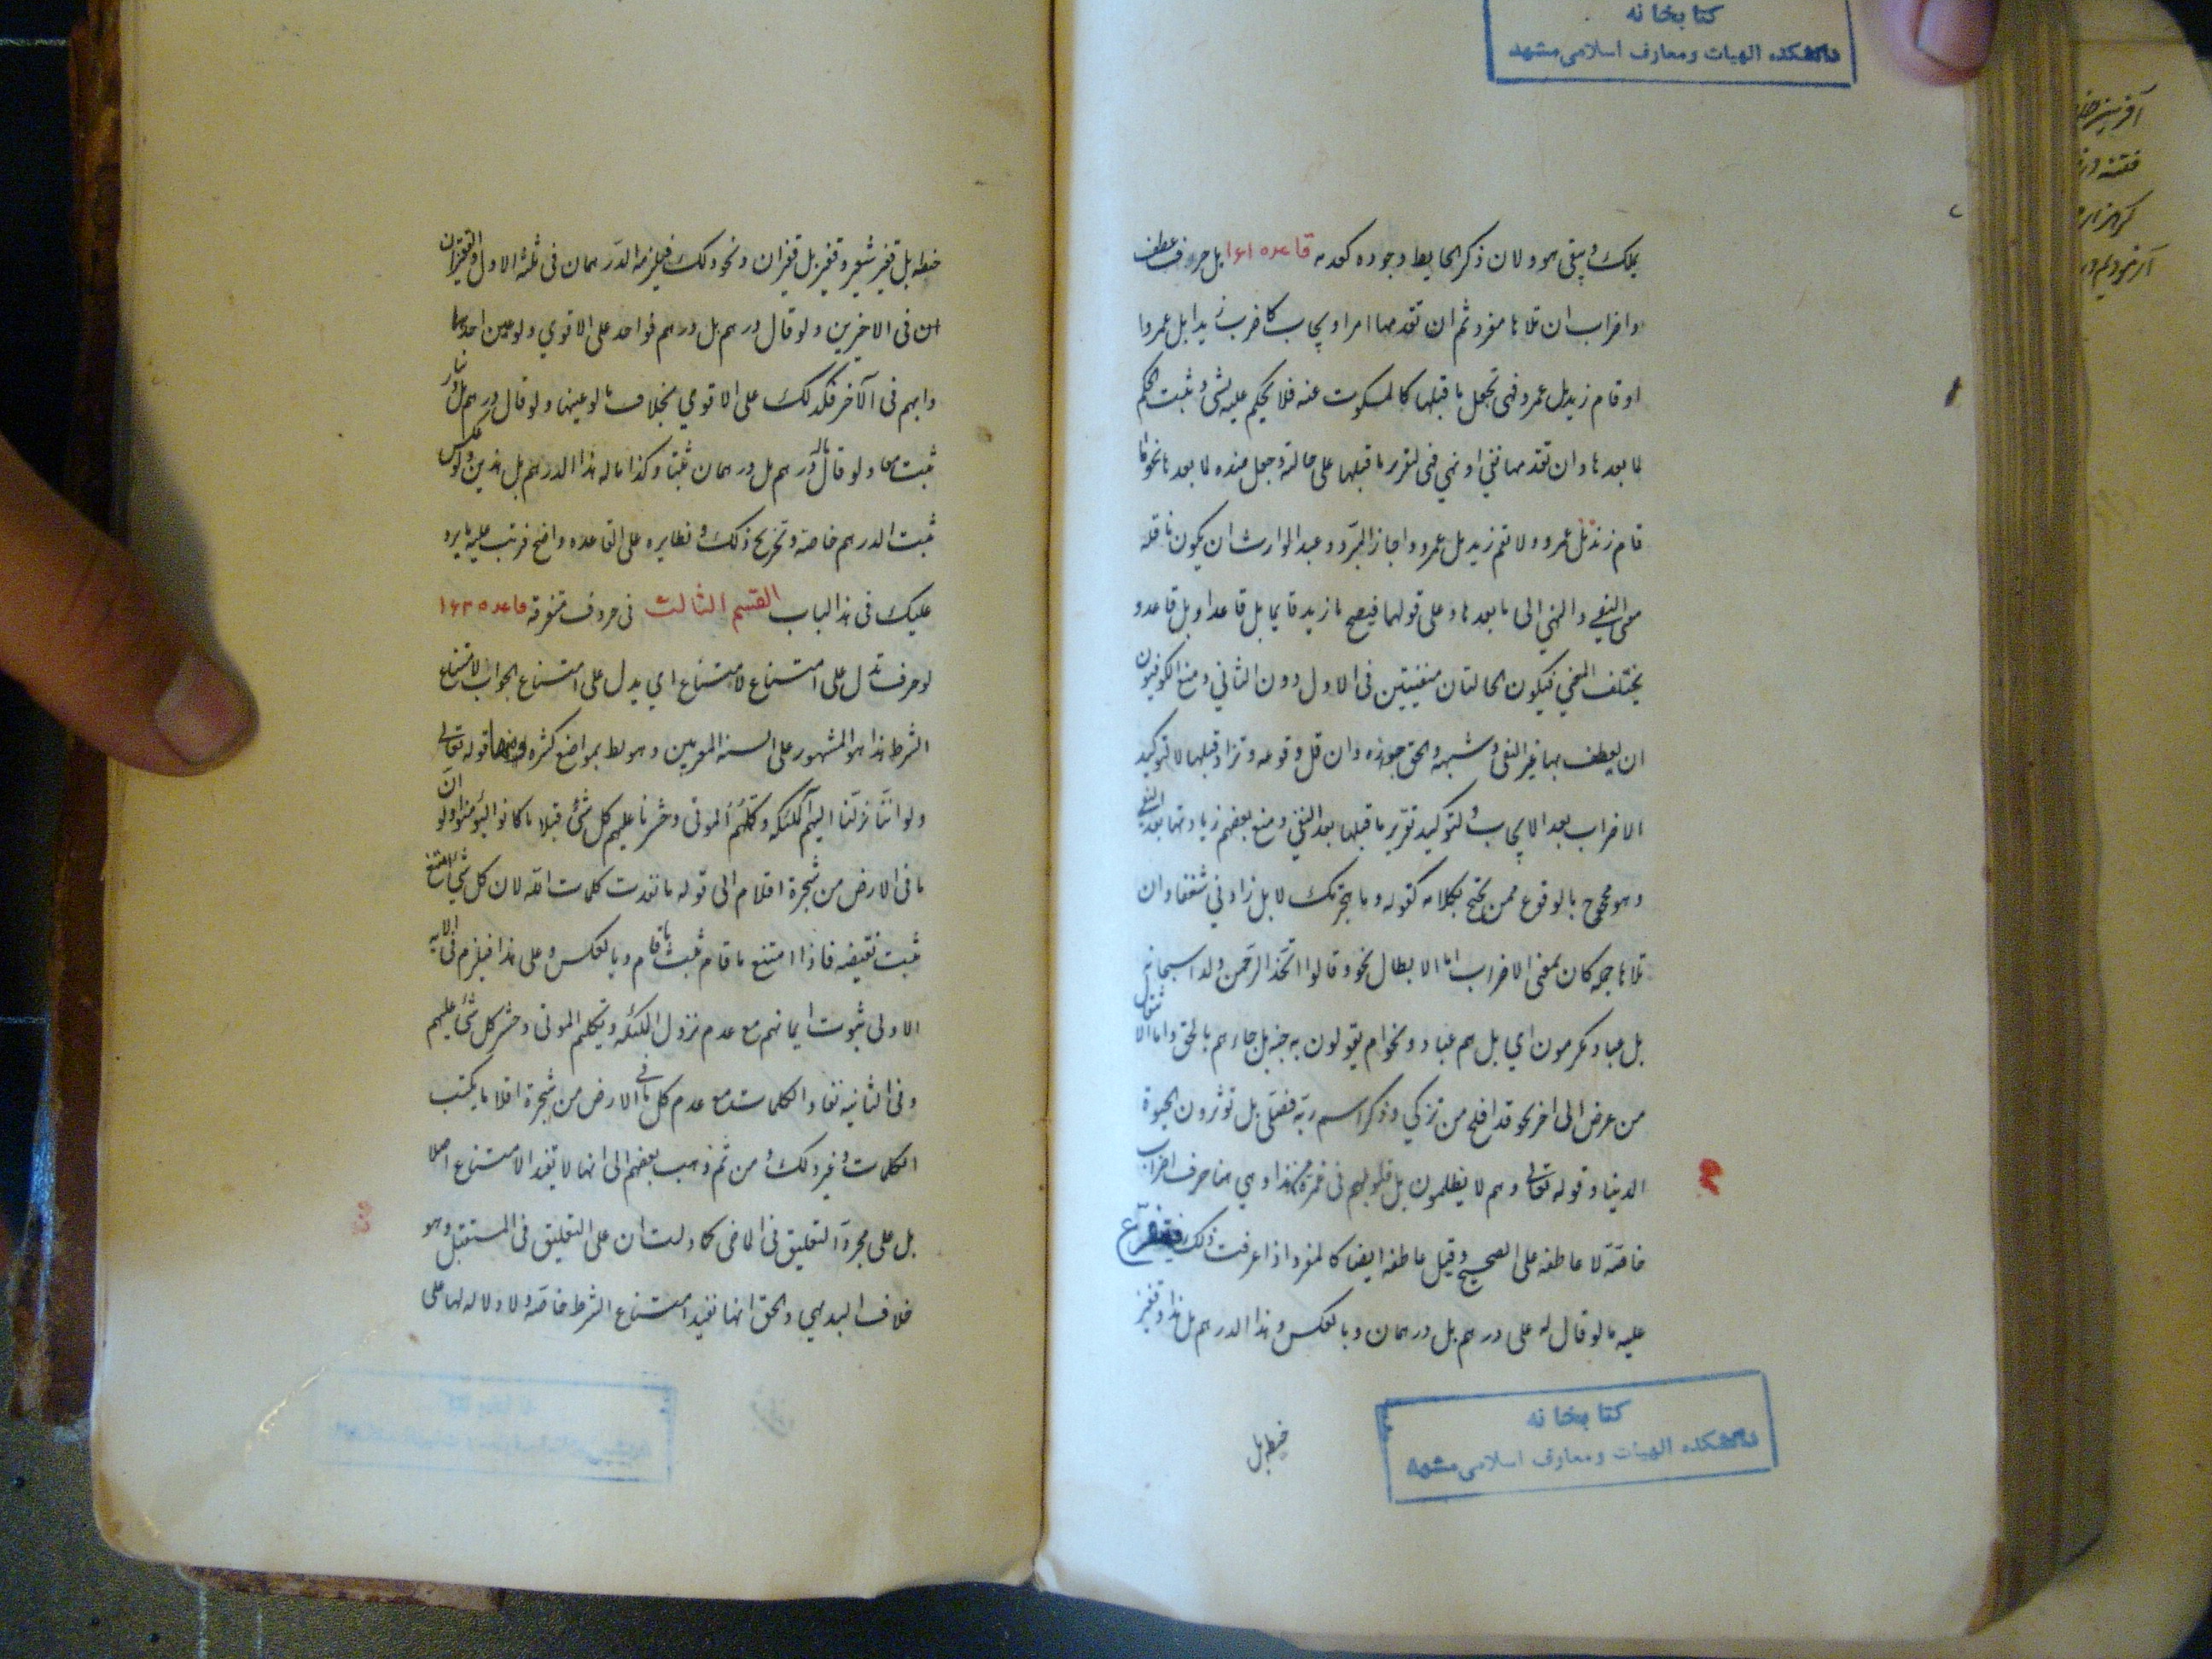 کتابخانه
دانشکده الهیات و معارف اسلامی مشهد
یملک و یبقی هو ولان ذکر الحایط وجوده کعدمه قاعده ۱۶۱ بل حرف عطف
واضراب ان تلاها مفرد ثم ان تقدمها امر او ایجاب کاضرب زیدا بل عمروا
او قام زید بل عمرو فهی تجعل ما قبلها کالمسکوت عنه فلا یحکم علیه بشی و یثبت الحکم
لما بعدها وان تقدمها نفی او نهی فهی لتقریر ما قبلها علی حالته وجعل ضده لما بعدها نحو ما
قام زید بل عمرو ولا تقم زید بل عمرو واجاز المبرّد وعبد الوارث ان یکون ناقله
معنی النفی والنهی الی ما بعدها وعلی قولهما فیصح ما زید قایما بل قاعدا وبل قاعد و
یختلف المعنی فیکون الحالتان منفیتین فی الاول دون الثانی ومنع الکوفیون
ان یعطف بها غیر النفی وشبهه والحق جوازه وان قل وقوعه وتزاد قبلها لا لتوکید
الاضراب بعد الایجاب ولتوکید تقریر ما قبلها بعد النفی ومنع بعضهم زیادتها بعد النفی
وهو محجوج بالوقوع ممن یحتج بکلامه کقوله وما هجرتک لا بل زادنی شغفا وان
تلاها جمله کان بمعنی الاضراب اما الابطال نحو وقالوا اتخذ الرحمن ولدا سبحانه
بل عباد مکرمون ای بل هم عباد ونحو ام یقولون به جنه بل جاءهم بالحق واما الانتقال
من عرض الی اخر نحو قد افلح من تزکی وذکر اسم ربّه فصلّی بل تؤثرون الحیوة
الدنیا وقوله تعالی وهم لا یظلمون بل قلوبهم فی غمرة من هذا وهی هنا حرف اضراب
خاصّة لا عاطفه علی الصحیح وقیل عاطفه ایضا کالمفرد اذا عرفت ذلک فیتفرّع
علیه ما لو قال له علی درهم بل درهمان وبالعکس وهذا الدرهم بل هذا وقفیز
حنطه بل
کتابخانه
دانشکده الهیات و معارف اسلامی مشهد
حنطه بل قفیز شعیر وقفیز بل قفیزان ونحو ذلک فیلزمه الدرهمان فی ثلثه الاول والقفیزان
ان فی الاخیرین ولو قال درهم بل درهم فواحد علی الاقوی ولو عین احدهما
وابهم فی الآخر فکذلک علی الاقوی بخلاف ما لو عینهما ولو قال درهم بل دینار
ثبت معا ولو قال ماله درهم بل درهمان ثبتا وکذا ماله هذا الدرهم بل هذین ولو عکس
ثبت الدرهم خاصة وتخریج ذلک ونظایره علی القاعده واضح فرتب علیه ما یرد
علیک فی هذا الباب القسم الثالث فی حروف متفرقه قاعده ۱۶۲
لو حرف تدل علی امتناع لامتناع ای یدل علی امتناع الجواب لامتناع
الشرط هذا هو المشهور علی السنة المعربین وهو بط بمواضع کثیره منها قوله تعالی
ولو انّنا نزلنا الیهم الملئکه وکلمهم الموتی وحشرنا علیهم کل شیء قبلا ما کانوا لیؤمنوا ولو انّ
ما فی الارض من شجرة اقلام الی قوله ما نفدت کلمات الله لان کل شیء امتنع
ثبت نقیضه فاذا امتنع ما قام ثبت قام وبالعکس وعلی هذا فیلزم فی الایه
الاولی ثبوت ایمانهم مع عدم نزول الملئکه وتکلم الموتی وحشر کل شیء علیهم
وفی الثانیه نفاد الکلمات مع عدم کل ما فی الارض من شجرة اقلاما یکتب
الکلمات وغیر ذلک ومن ثم ذهب بعضهم الی انها لا تفید الامتناع اصلا
بل علی مجرد التعلیق فی الماضی کما دلت ان علی التعلیق فی المستقبل وهو
خلاف البدیهی والحق انها تفید امتناع الشرط خاصّه ولا دلاله لها علی